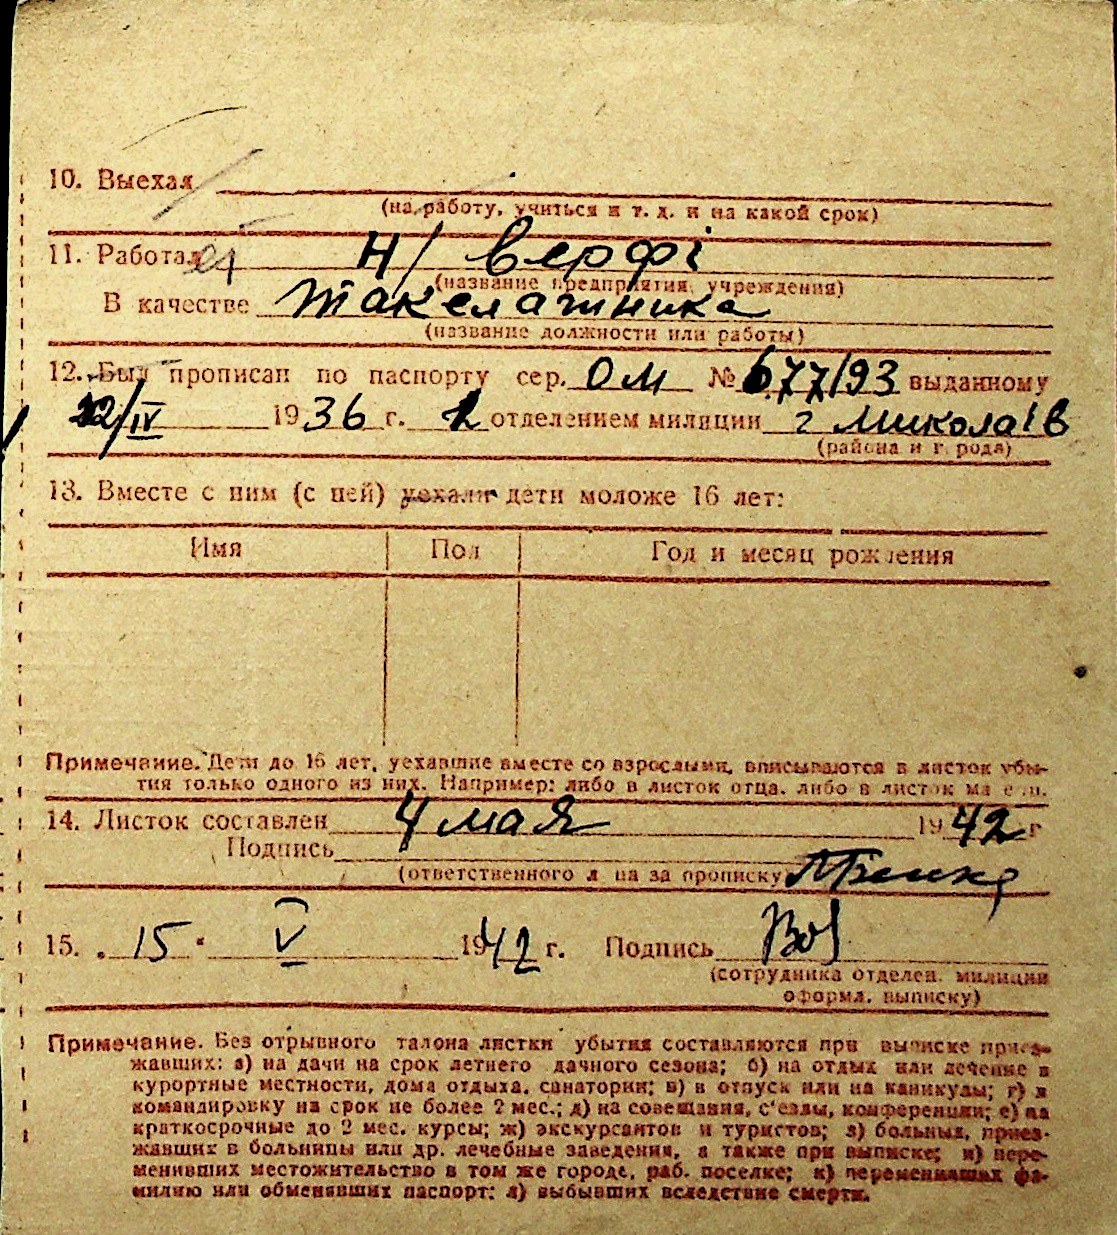 10. Выехал
(на работу, учиться и т. д. и на какой срок)
11. Работал Н/ верфі
(название предприятия, учреждения)
В качестве такелажника
(название должности или работы)
12. Был прописан по паспорту сер. ОМ № 677193 выданному
22/IV 1936 г. 2 отделением милиции г Миколаїв
(района и города)
13. Вместе с ним (с ней) уехали дети моложе 16 лет:
Имя Пол Год и месяц рождения
Примечание. Дети до 16 лет, уехавшие вместе со взрослыми, вписываются в листок убы-
тия только одного из них. Например: либо в листок отца, либо в листок матери.
14. Листок составлен 4 мая 1942 г
Подпись
(ответственного лица за прописку)
15. „15" V 1942 г. Подпись
(сотрудника отделен. милиции
оформл. выписку)
Примечание. Без отрывного талона листки убытия составляются при выписке приез-
жавших: а) на дачи на срок летнего дачного сезона; б) на отдых или лечение в
курортные местности, дома отдыха, санатории; в) в отпуск или на каникулы; г) в
командировку на срок не более 2 мес.; д) на совещания, с'езды, конференции; е) на
краткосрочные до 2 мес. курсы; ж) экскурсантов и туристов; з) больных, приез-
жавших в больницы или др. лечебные заведения, а также при выписке; и) пере-
менивших местожительство в том же городе, раб. поселке; к) переменивших фа-
милию или обменявших паспорт; л) выбывших вследствие смерти.